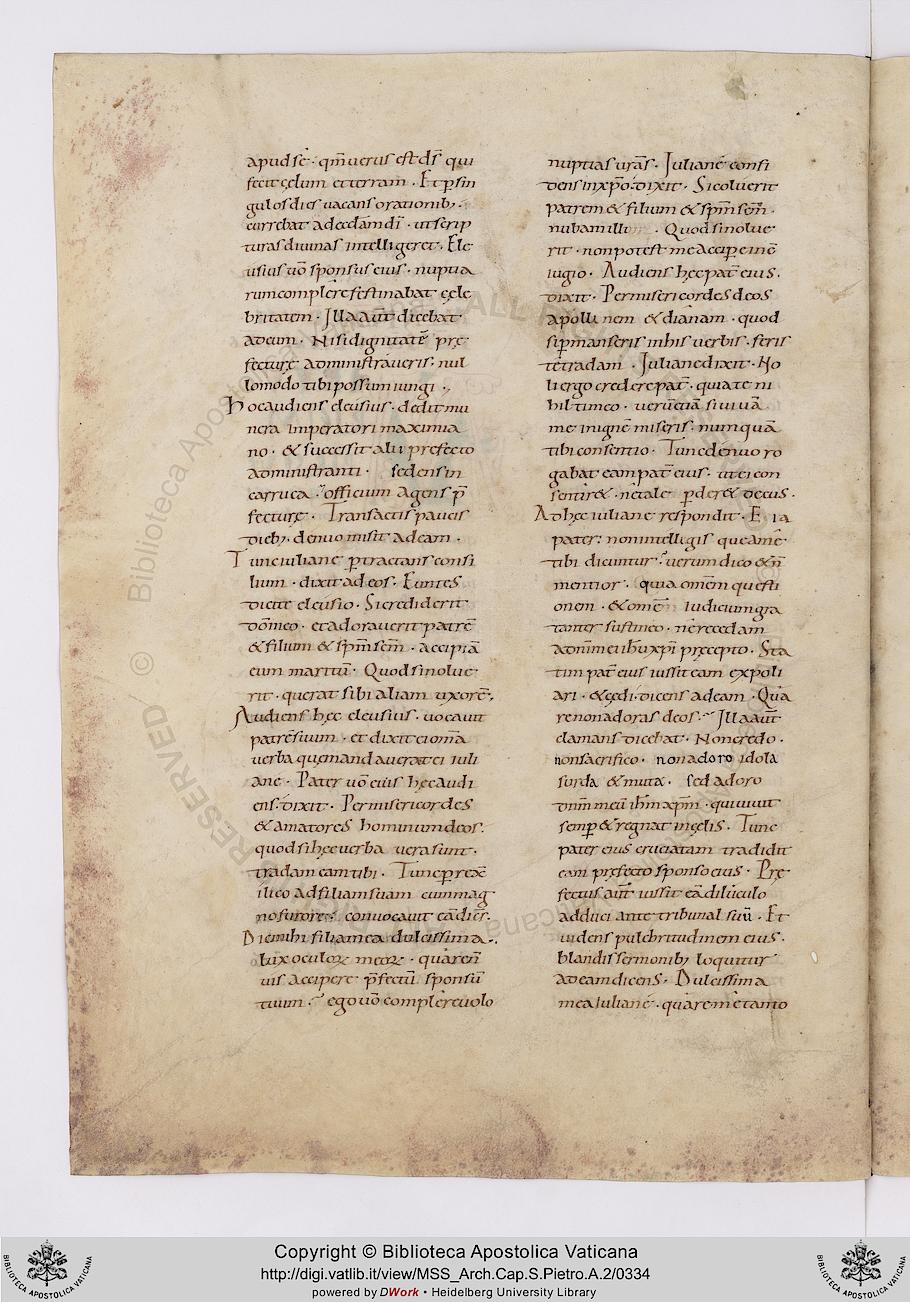 apud se · qm̄ uerus est dś qui
fecit cęlum et terram · Et p sin
gulos dies uacans orationib; ·
currebat ad ęcclam dī · ut scrip
turas diuinas intelligeret · Ele
usius uō sponsus eius · nuptia
rum complere festinabat cęle
britatem · Illa aut̄ dicebat
ad eum · Nisi dignitatē prę
fecturę administraueris · nul
lo modo tibi possum iungi ·,
Hoc audiens eleusius · dedit mu
nera imperatori maximia
no · & successit alii prefecto
administranti · sedens in
carruca · officium agens p̄
fecturę · Transactis paucis
dieb; · denuo misit ad eam ·
Tunc iuliane ptractans consi
lium · dixit ad eos · Euntes
dicite eleusio · Si crediderit
dōm̄eo · et adorauerit patrē
& filium & spm̄ scm̄ · accipiā
eum maritū · Quod si nolue
rit · querat sibi aliam uxorē ·,
Audiens hęc eleusius · uocauit
patrē suum · et dixit ei om̄a
uerba quę mandauerat ei iuli
ane · Pater uō eius hęc audi
ens · dixit · Per misericordes
& amatores hominum deos ·
quod si hęc uerba uera sunt ·
tradam eam tibi · Tunc prexē
ilico ad filiam suam cum mag
no furore · conuocauit eā diēs ·
Dic mihi filia mea dulcissima ·,
lux oculoꝝ meoꝝ · quare n̄
uis accipere p̄fectū sponsū
tuum · ego uō complere uolo
nuptias urās · Iuliane confi
dens in xpō · dixit · Si coluerit
patrem & filium & spm̄ scm̄ ·
nubam illi · Quod si nolue
rit · non potest me accipe in cō
iugio · Audiens hęc pat̄ eius ·
dixit · Per misericordes deos
apollinem & dianam · quod
si pmanseris in his uerbis · feris
te tradam · Iuliane dixit · No
li ergo credere pat̄ · quia te ni
hil timeo · uerū etiā si uiuā
me in igne miseris · numquā
tibi consentio · Tunc denuo ro
gabat eam pat̄ eius · ut ei con
sentir& · ne tale pder& decus ·
Ad hęc iuliane respondit · E ia
pater · non intelligis que a me
tibi dicuntur · uerum dico & n̄
mentior · quia omēm questi
onem · & omē iudicium gra
tanter sustineo · ne recedam
a dnī mei ihu xpi pręcepto · Sta
tim pat̄ eius iussit eam expoli
ari · & cędi · dicens ad eam · Qua
re non adoras deos · Illa aut̄
clamans dicebat · Non credo ·
non sacrifico · non adoro idola
surda & muta · sed adoro
dnm̄ meū ihm̄ xpm̄ · qui uiuit
semp & regnat in cęlis · Tunc
pater eius cruciatam tradidit
eam pręfecto sponso eius · Prę
fectus aut̄ iussit eā diluculo
adduci ante tribunal suū · Et
uidens pulchritudinem eius ·
blandis sermonib; loquitur
ad eam dicens · Dulcissima
mea Iuliane · quare me tanto
Copyright © Biblioteca Apostolica Vaticana
http://digi.vatlib.it/view/MSS_Arch.Cap.S.Pietro.A.2/0334
powered by DWork • Heidelberg University Library